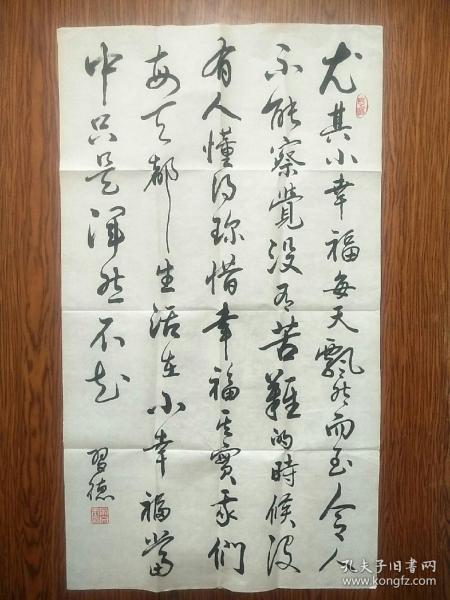 尤其小幸福每天飘然而至令人
不能察覺没有苦難的時候没
有人懂得珍惜幸福其實我們
每天都生活在小幸福當
中只是渾然不知
習德
孔夫子旧书网
www.kongfz.com